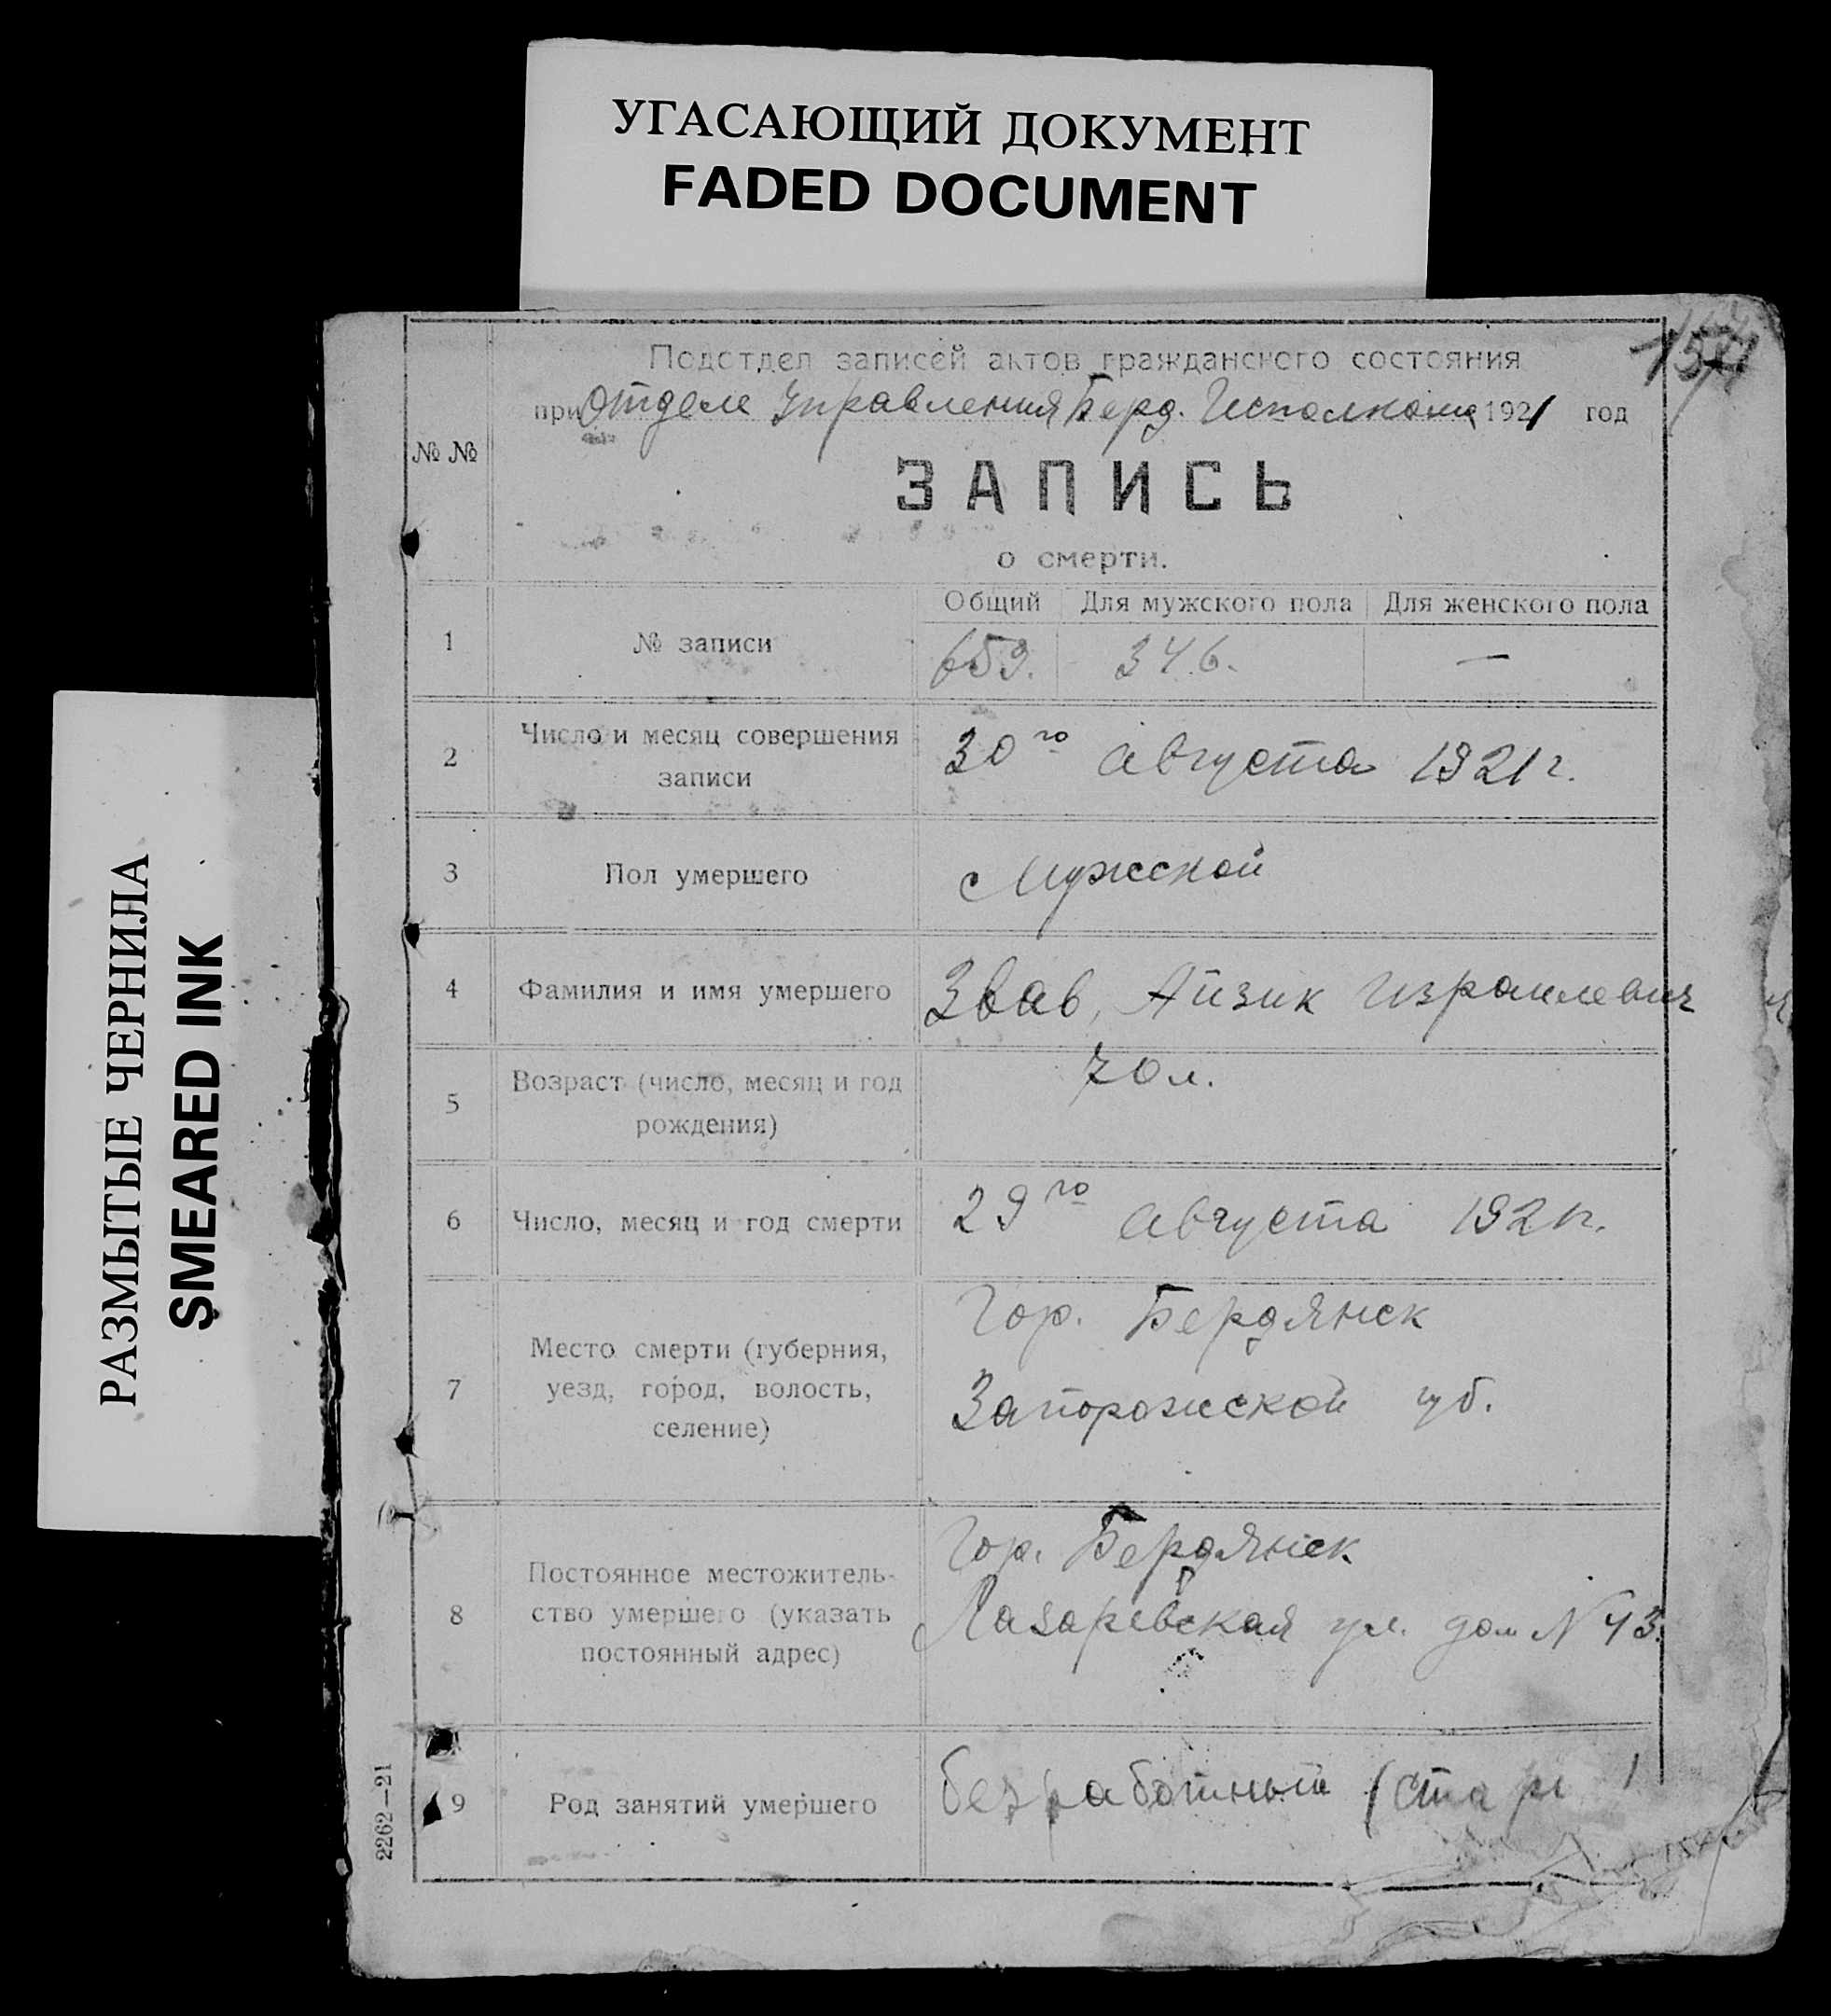 УГАСАЮЩИЙ ДОКУМЕНТ
FADED DOCUMENT
РАЗМЫТЫЕ ЧЕРНИЛА
SMEARED INK
Подотдел записей актов гражданского состояния
при Отделе Управления Берд. Исполкома 1921 год
№ №
ЗАПИСЬ
о смерти.
Общий Для мужского пола Для женского пола
1 № записи 659. 346. —
2 Число и месяц совершения
записи
30го Августа 1921 г.
3 Пол умершего Мужской
4 Фамилия и имя умершего Звав, Айзик Израилевич
5 Возраст (число, месяц и год
рождения)
70 л.
6 Число, месяц и год смерти 29го Августа 1921 г.
7 Место смерти (губерния,
уезд, город, волость,
селение)
Гор. Бердянск
Запорожской губ.
8 Постоянное местожитель-
ство умершего (указать
постоянный адрес)
Гор. Бердянск
Лазаревская ул. дом N 43.
9 Род занятий умершего безработный
2262—21